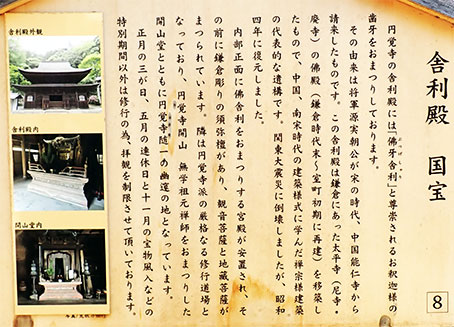 舎利殿 国宝
円覚寺の舎利殿には「佛牙舎利」と尊崇されるお釈迦様の
歯牙をおまつりしております。
その由来は将軍源実朝公が宋の時代、中国能仁寺から
請来したものです。この舎利殿は鎌倉にあった太平寺（尼寺・
廃寺）の佛殿（鎌倉時代末～室町初期に再建）を移築し
たもので、中国、南宋時代の建築様式に学んだ禅宗様建築
の代表的な遺構です。関東大震災に倒壊しましたが、昭和
四年に復元しました。
内部正面に佛舎利をおまつりする宮殿が安置され、そ
の前に鎌倉彫りの須弥壇があり、観音菩薩と地蔵菩薩が
まつられています。隣は円覚寺派の厳格なる修行道場と
なっており、円覚寺開山 無学祖元禅師をおまつりした
開山堂とともに円覚寺随一の幽邃の地となっています。
正月の三が日、五月の連休日と十一月の宝物風入などの
特別期間以外は修行の為、拝観を制限させて頂いております。
舎利殿外観
舎利殿内
開山堂内
8